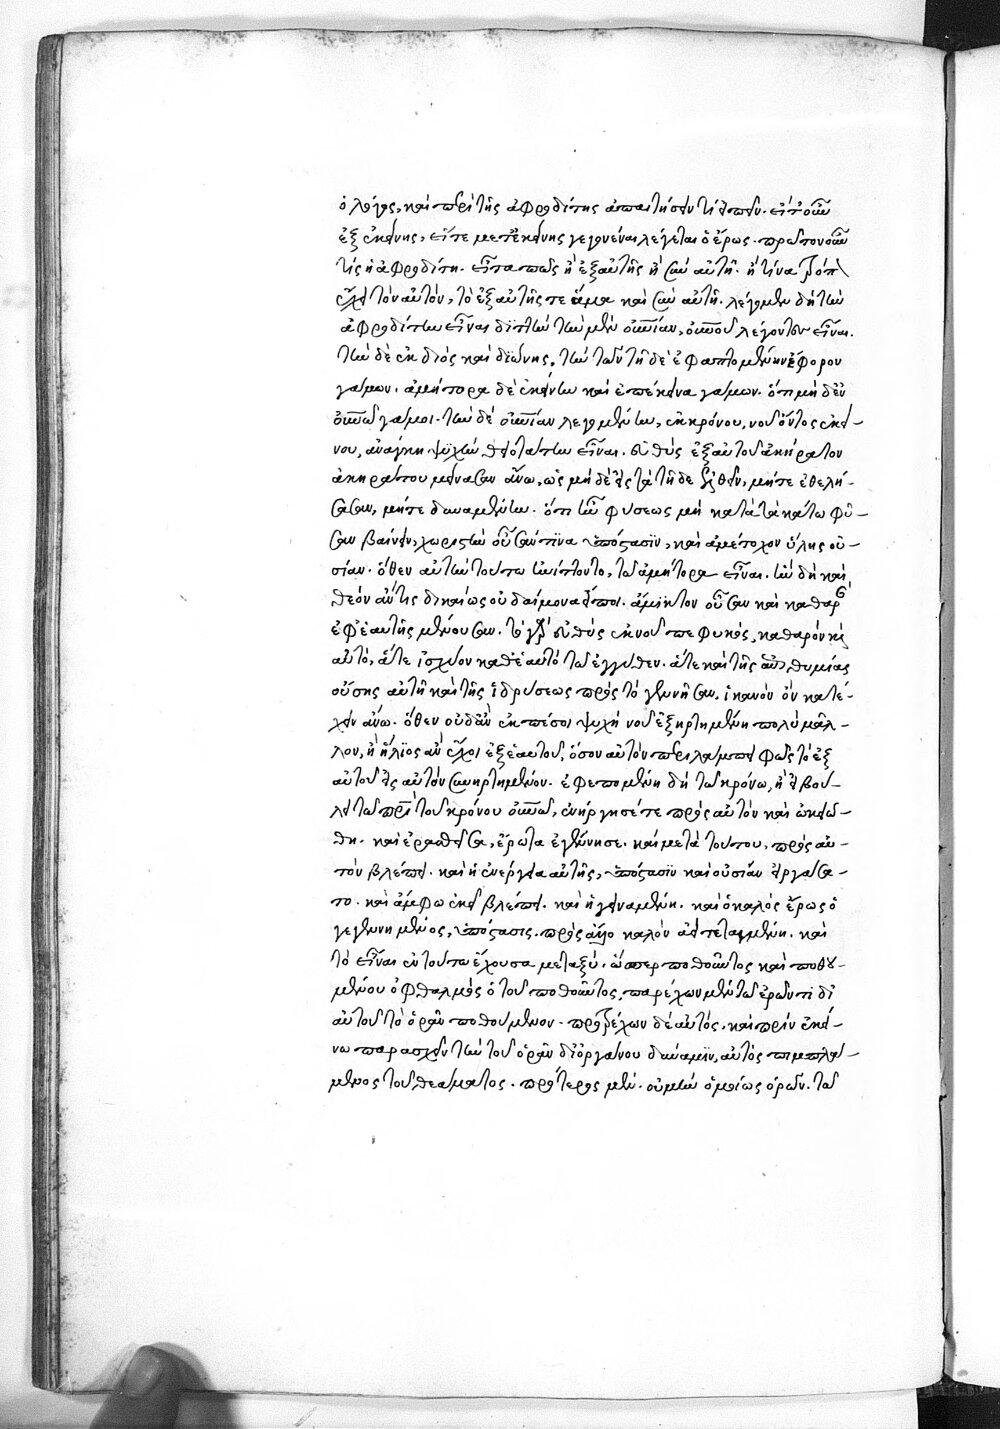 ὁ λόγος, καὶ περὶ τῆς ἀφροδίτης ἀπαιτήσειν τί εἰπεῖν. εἴτ' οὖν
ἐξ ἐκείνης, εἴτε μετ' ἐκείνης γεγονέναι λέγεται ὁ ἔρως. πρῶτον οὖν
τίς ἡ ἀφροδίτη. εἶτα πῶς ἢ ἐξ αὐτῆς ἢ σὺν αὐτῇ. ἢ τίνα τρόπον
ἔχει τὸν αὐτὸν, τὸ ἐξ αὐτῆς τε ἅμα καὶ σὺν αὐτῇ. λέγομεν δὴ τὴν
ἀφροδίτην εἶναι διττὴν τὴν μὲν οὐρανίαν, οὐρανοῦ λέγοντες εἶναι.
τὴν δὲ ἐκ διὸς καὶ διώνης, τὴν τῶν τῇδε ἐφαπτομένην ἔφορον
γάμων. ἀμήτορα δὲ ἐκείνην καὶ ἐπέκεινα γάμων. ὅτι μὴ δ' ἐν
οὐρανῷ γάμοι. τὴν δὲ οὐρανίαν λεγομένην, ἐκ κρόνου, νοῦ ὄντος ἐκεί-
νου, ἀνάγκη ψυχὴν θειοτάτην εἶναι. εὐθὺς ἐξ αὐτοῦ ἀκήρατον
ἀκηράτου μείνασαν ἄνω, ὡς μὴ δὲ εἰς τὰ τῇδε ἐλθεῖν, μήτε ἐθελή-
σασαν, μήτε δυναμένην. ὅτι ἦν φύσεως μὴ κατὰ τὰ κάτω φῦ-
σαν βαίνειν, χωριστὴν οὖσάν τινα ὑπόστασιν, καὶ ἀμέτοχον ὕλης οὐ-
σίαν. ὅθεν αὐτὴν τούτῳ ᾐνίττοντο, τῷ ἀμήτορα εἶναι. ἣν δὴ καὶ
θεὸν ἄν τις δικαίως οὐ δαίμονα εἴποι. ἄμικτον οὖσαν καὶ καθαρὰν
ἐφ' ἑαυτῆς μένουσαν. τὸ γὰρ εὐθὺς ἐκ νοῦ πεφυκὸς, καθαρὸν καὶ
αὐτὸ, ἅτε ἰσχύον καθ' ἑαυτὸ τῷ ἐγγύθεν. ἅτε καὶ τῆς ἐπιθυμίας
οὔσης αὐτῇ καὶ τῆς ἱδρύσεως πρὸς τὸ γεννῆσαν. ἱκανὸν ὂν κατέ-
χειν ἄνω. ὅθεν οὐδ' ἂν ἐκπέσοι ψυχὴ νοῦ ἐξηρτημένη πολὺ μᾶλ-
λον, ἢ ἥλιος ἂν ἔχοι ἐξ ἑαυτοῦ, ὅσον αὐτὸν περιλάμπει φῶς τὸ ἐξ
αὐτοῦ εἰς αὐτὸν συνηρτημένον. ἐφεπομένη δὴ τῷ κρόνῳ, ἢ εἰ βού-
λει τῷ πατρὶ τοῦ κρόνου οὐρανῷ, ἐνήργησέ τε πρὸς αὐτὸν καὶ ᾠκειώ-
θη. καὶ ἐρασθεῖσα, ἔρωτα ἐγέννησε. καὶ μετὰ τούτου, πρὸς αὐ-
τὸν βλέπει. καὶ ἡ ἐνέργεια αὐτῆς, ὑπόστασιν καὶ οὐσίαν εἰργάσα-
το. καὶ ἄμφω ἐκεῖ βλέπει. καὶ ἡ γειναμένη. καὶ ὁ καλὸς ἔρως ὁ
γεγενημένος, ὑπόστασις. πρὸς ἄλλο καλὸν ἀεὶ τεταγμένη. καὶ
τὸ εἶναι ἐν τούτῳ ἔχουσα μεταξύ. ὥσπερ ποθοῦντος καὶ ποθου-
μένου ὀφθαλμὸς ὁ τοῦ ποθοῦντος, παρέχων μὲν τῷ ἐρῶντι δι'
αὐτοῦ τὸ ὁρᾶν ποθούμενον. προτρέχων δὲ αὐτός. καὶ πρὶν ἐκεί-
νῳ παρασχεῖν τὴν τοῦ ὁρᾶν δι' ὀργάνου δύναμιν, αὐτὸς πιμπλά-
μενος τοῦ θεάματος. πρότερος μὲν. οὐ μὴν ὁμοίως ὁρῶν. τῷ